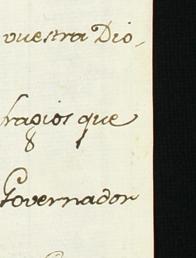 vuestra Dio-
fragios que
Governador